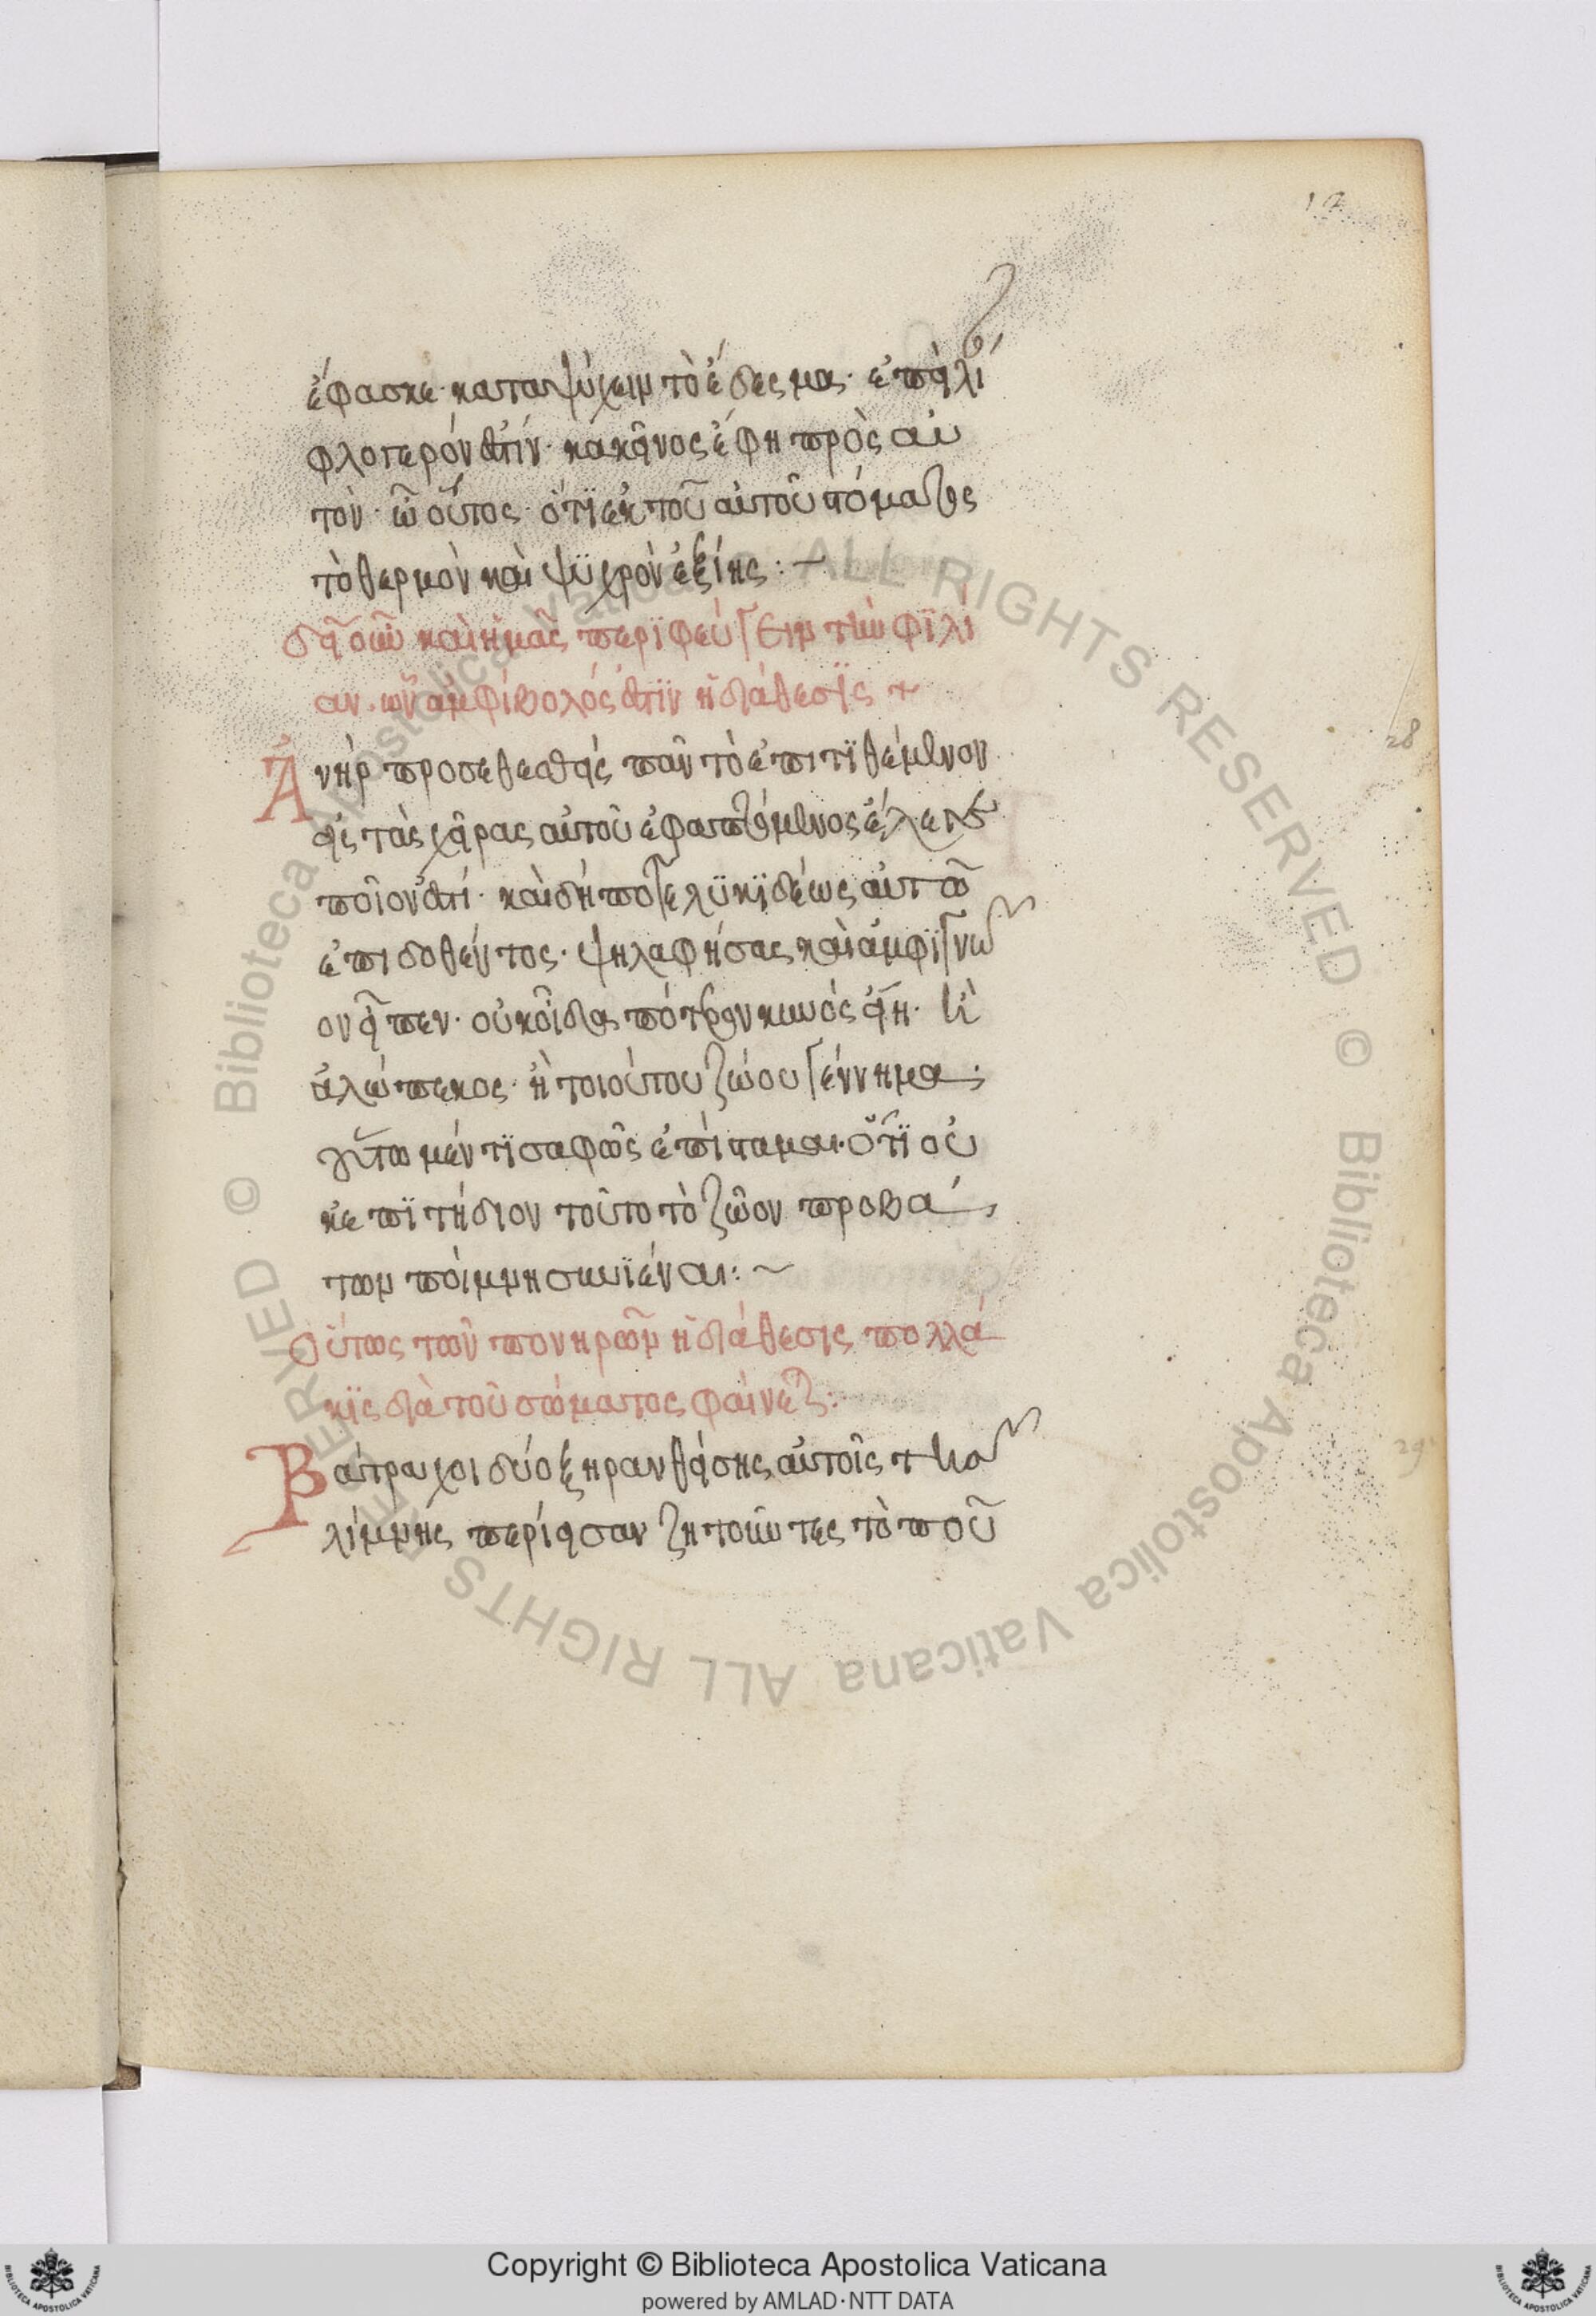 12
ἔφασκε· καταψύχειν τὸ ἔδεσμα· ἐπεὶ λί
φλογερόν ἐστιν· κἀκεῖνος ἔφη πρὸς αὐ
τὸν· ὦ οὗτος· ὅτϊ ἐκ τοῦ αὐτοῦ στόματος
τὸ θερμὸν καὶ ψϋχρὸν ἐξίης: ~
δεῖ οὖν καὶ ἡμᾶς περϊφεύγειν τὴν φϊλί
αν· ὧν ἀμφίβολός ἐστϊν ἡ διάθεσϊς +
28
Ἀνὴρ προσεθεστεὶς πᾶν τὸ ἐπιτϊθέμενον
εἰς τὰς χεῖρας αὐτοῦ ἐφαπτόμενος ἔλεγε
ποῖον ἐστί· καὶ δή ποτε λϋκϊδέως αὐτῶ
ἐπιδοθέντος· ψηλαφήσας καὶ ἀμφϊγνω
ον εἶπεν· οὐκ οἶδα πότερον κυνὸς εἴη· ἢ
ἀλώπεκος· ἢ τοιούτου ζώου γέννημα·
τοῦτο μέν τϊ σαφῶς ἐπίσταμαι· ὅτϊ οὐ
κ ἐπϊτήδιον τοῦτο τὸ ζῶον προβά
των ποίμνη συνϊέναι: ~
Οὕτως τῶν πονηρῶν ἡ διάθεσις πολλά
κϊς διὰ τοῦ σώματος φαίνεται:
29
Βάτραχοι δύο ξηρανθείσης αὐτοῖς τῆς
λίμνης περίεσαν ζητοῦντες τὸ ποῦ
Copyright © Biblioteca Apostolica Vaticana
powered by AMLAD·NTT DATA
© Biblioteca Apostolica Vaticana ALL RIGHTS RESERVED © Biblioteca Apostolica Vaticana ALL RIGHTS RESERVED